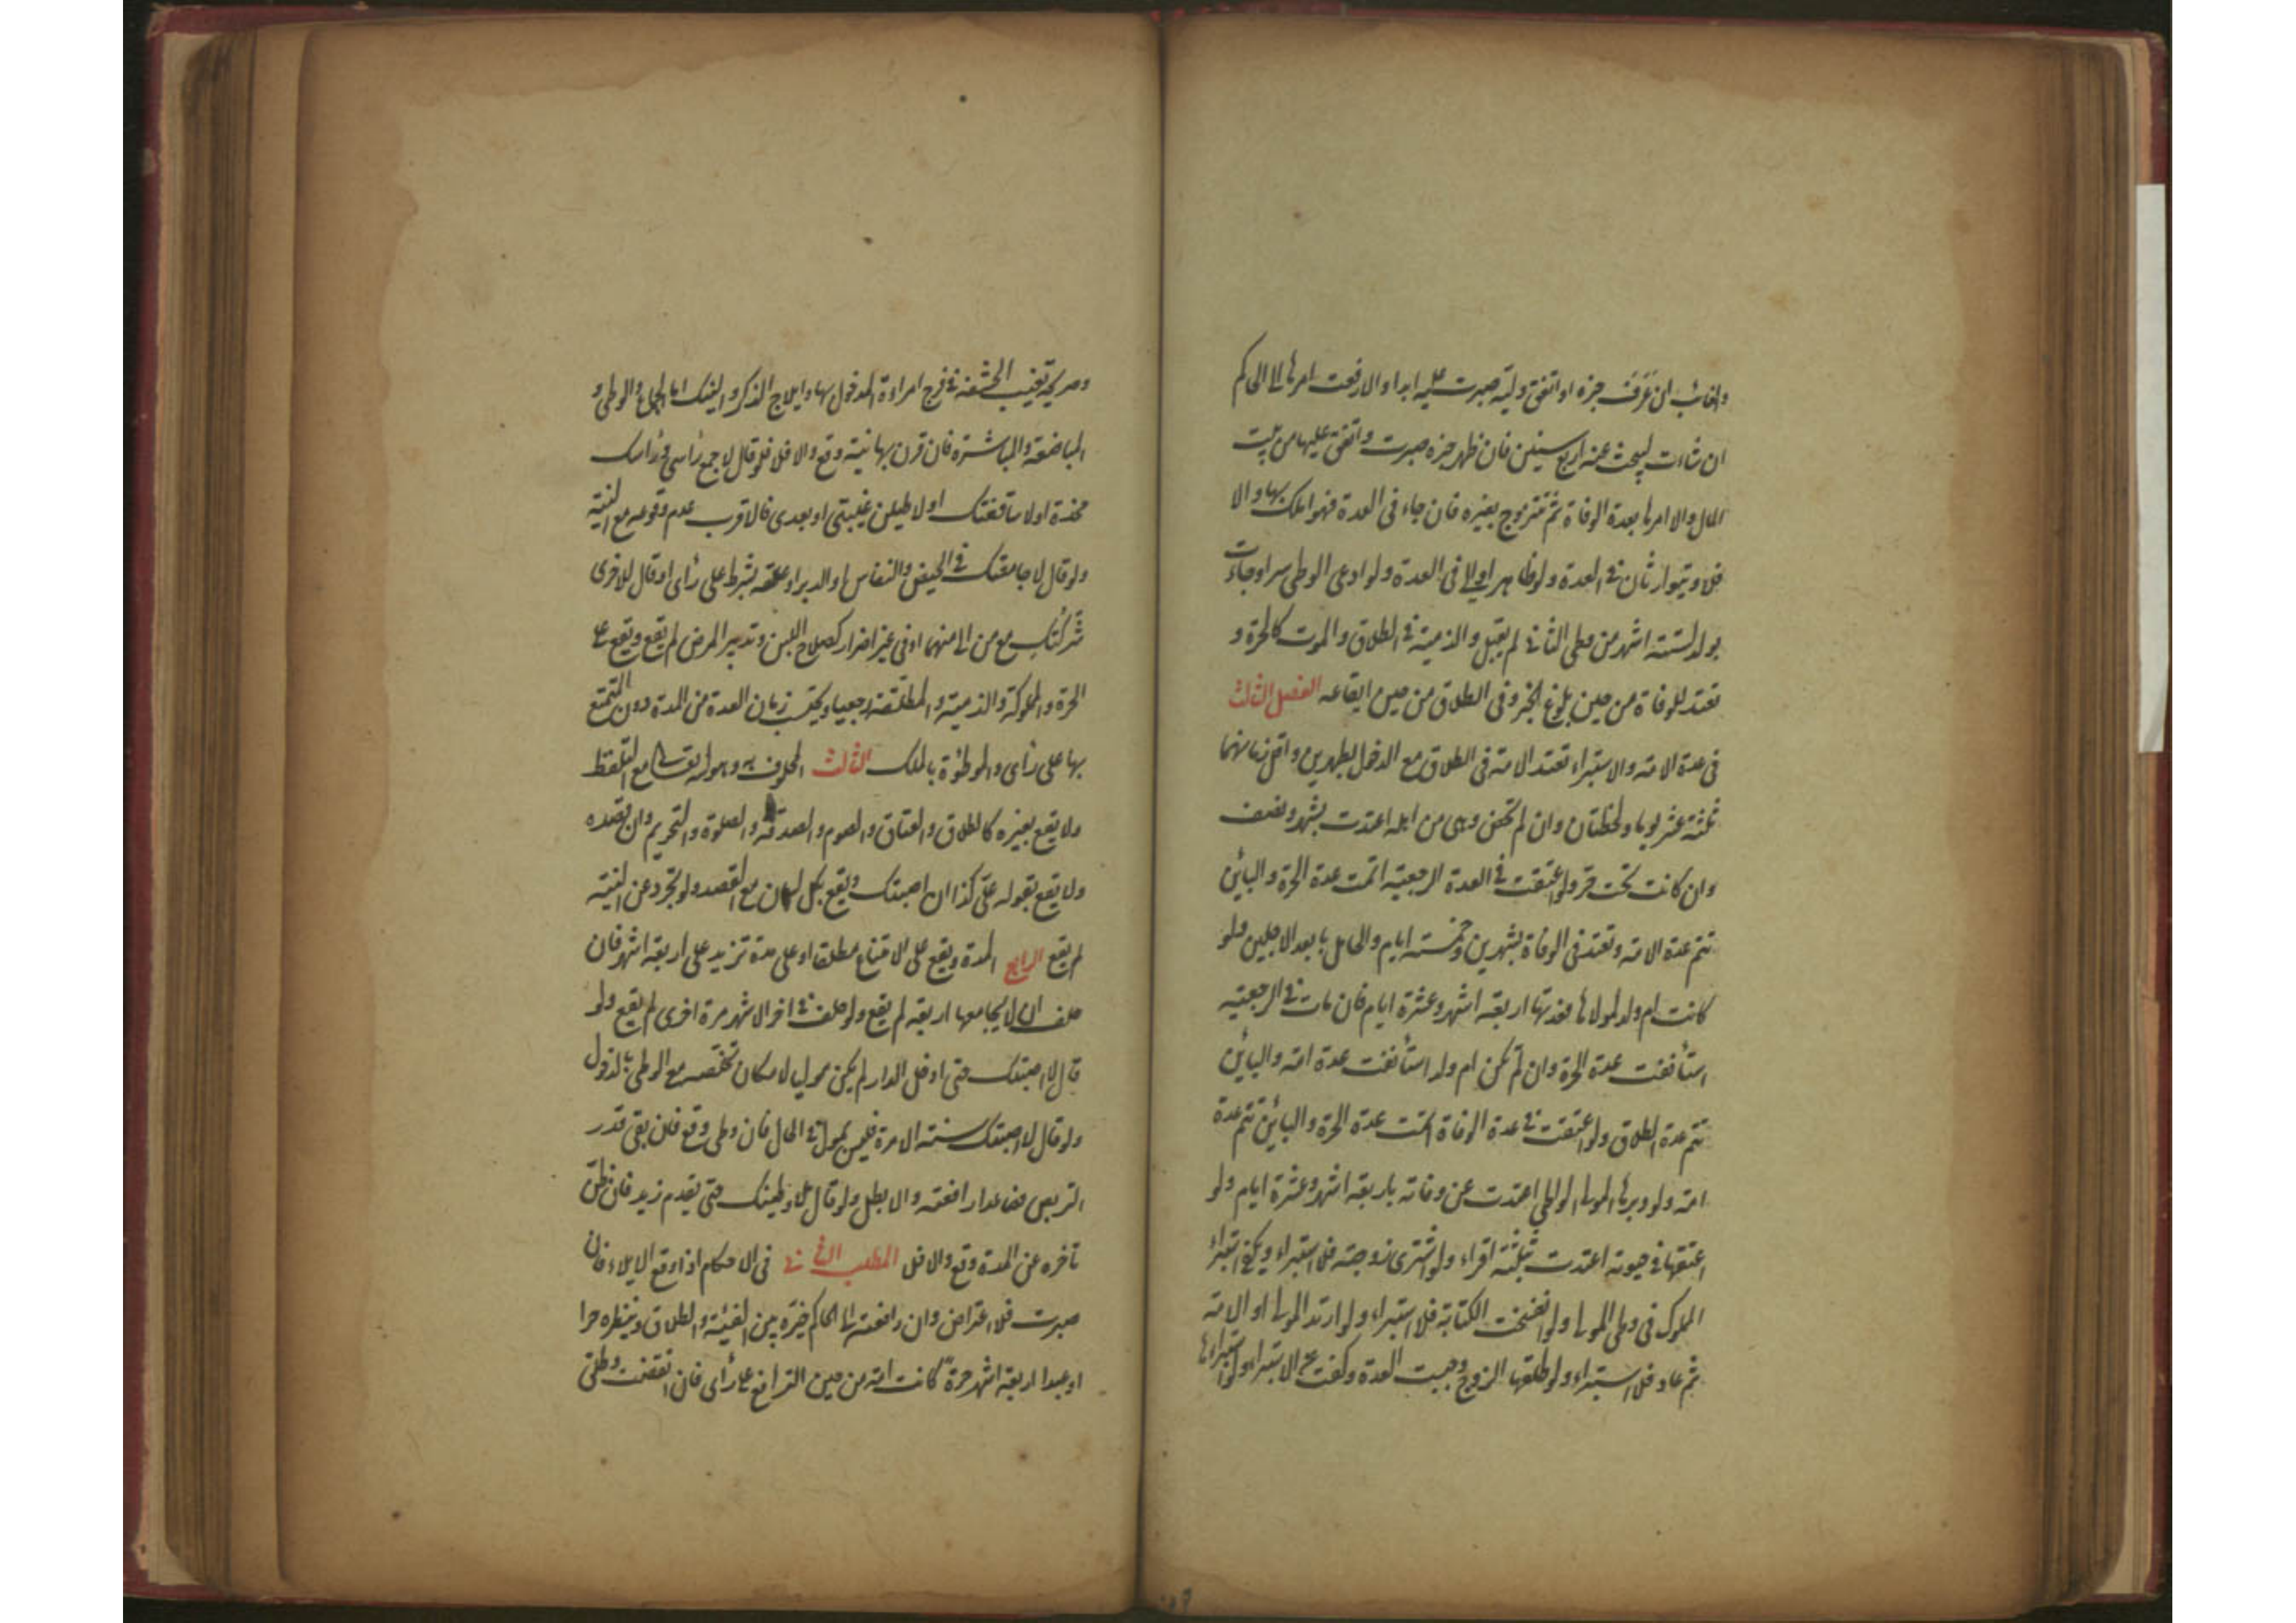 والغائب ان عرف خبره او انفق وليه صبرت عليه ابدا والا رفعت امرها الى الحاكم
ان شاءت ليبحث عنه اربع سنين فان ظهر خبره صبرت وانفق عليها من بيت
المال والا امرها بعدة الوفاة ثم تتزوج بغيره فان جاء فى العدة فهو املك بها والا
فلا ويتوارثان فى العدة ولو ظاهر او الى فى العدة ولو ادعى الوطى سرا وجاءت
بولد لستة اشهر من وطى الثانى لم يقبل والذمية فى الطلاق والموت كالحرة و
تعتد للوفاة من حين بلوغ الخبر وفى الطلاق من حين ايقاعه الفصل الثالث
فى عدة الامة والاستبراء تعتد الامة فى الطلاق مع الدخول بطهرين واقل زمانهما
ثلثة عشر يوما ولحظتان وان لم تحض وهى من اهله اعتدت بشهر ونصف
وان كانت تحت حر ولو اعتقت فى العدة الرجعية اتمت عدة الحرة والبائن
تتم عدة الامة وتعتد فى الوفاة بشهرين وخمسة ايام والحامل بابعد الاجلين ولو
كانت ام ولد لمولاها فعدتها اربعة اشهر وعشرة ايام فان مات فى الرجعية
استأنفت عدة الحرة وان لم تكن ام ولد استأنفت عدة امة والبائن
تتم عدة الطلاق ولو اعتقت فى عدة الوفاة اتمت عدة الحرة والبائن تتم عدة
امة ولو دبرها المولى الواطى اعتدت عن وفاته باربعة اشهر وعشرة ايام ولو
اعتقها فى حيوته اعتدت بثلثة اقراء ولو اشترى زوجته فلا استبراء ويكفى استبراء
المملوك فى وطى المولى ولو انفسخت الكتابة فلا استبراء ولو ارتد المولى او الامة
ثم عاد فلا استبراء ولو طلقها الزوج وجبت العدة وكفت عن الاستبراء ولو استبراءها
وصريحه تغييب الحشفة فى فرج امراءة المدخول بها وايلاج الذكر والنيك اما الجماع والوطى و
المباضعة والمباشرة فان قرن بها نية وقع والا فلا فلو قال لا جمع رأسى ورأسك
مخدة او لا ساقفتك او لاطيلن غيبتى او بعدى فالاقرب عدم وقوعه مع النية
ولو قال لا جامعتك فى الحيض والنفاس او الدبر او علقه بشرط على رأى او قال للاخرى
شركتك مع من الى منهما او فى غير اضرار كصلاح اللبن وتدبير المرض لم يقع ويقع على
الحرة والمملوكة والذمية والمطلقة رجعيا ويحتسب زمان العدة من المدة دون المتمتع
بها على رأى والموطؤة بالملك الثالث المحلوف به وهو الله تعالى مع التلفظ
ولا يقع بغيره كالطلاق والعتاق والصوم والصدقة والصلوة والتحريم وان قصده
ولا يقع بقوله على كذا ان اصبتك ويقع بكل لسان مع القصد ولو تجرد عن النية
لم يقع الرابع المدة ويقع على الامتناع مطلقا او على مدة تزيد على اربعة اشهر فان
حلف ان لا يجامعها اربعة لم يقع ولو حلف فى اخر الاشهر مرة اخرى لم يقع ولو
قال لا اصبتك حتى ادخل الدار لم يكن موليا لامكان تخلصه مع الوطى بالدخول
ولو قال لا اصبتك سنة الا مرة فليس بمول فى الحال فان وطى وقع فان بقى قدر
التربص فصاعدا رافعته والا بطل ولو قال لا وطئتك حتى يقدم زيد فان ظن
تأخره عن المدة وقع والا فلا المطلب الثانى فى الاحكام اذا وقع الايلاء فان
صبرت فلا اعتراض وان رافعته الى الحاكم خيره بين الفئة والطلاق وينظره حرا
او عبدا اربعة اشهر حرة كانت امة من حين الترافع على رأى فان انقضت وطلق